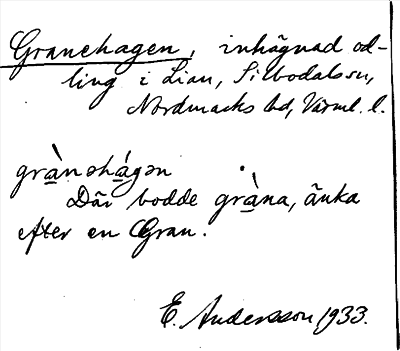 Granehagen, inhägnad od-
ling i Lian, Silbodals sn,
Nordmarks hd, Värml. l.
grànəhágən
Där bodde gràna, änka
efter en Gran.
E. Andersson 1933.